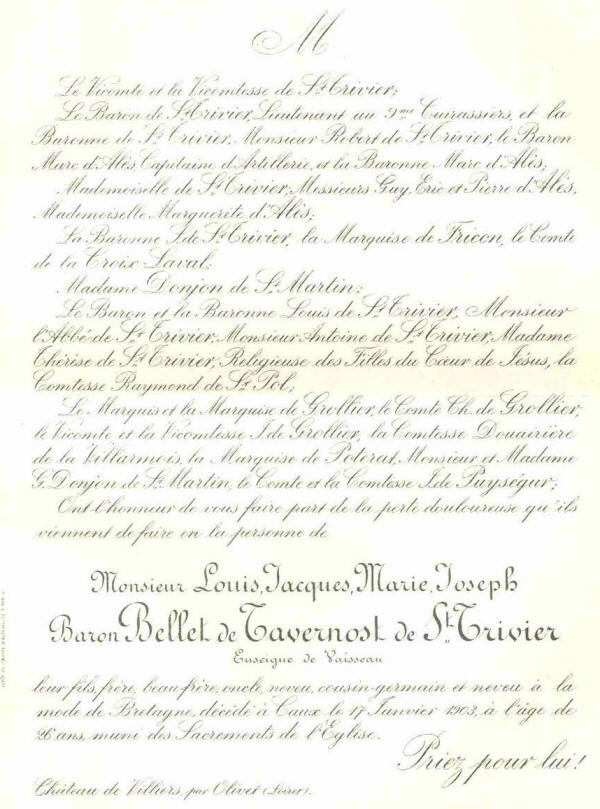 M
Le Vicomte et la Vicomtesse de St. Trivier;
Le Baron de St. Trivier, Lieutenant au 9me Cuirassiers, et la
Baronne de St. Trivier, Monsieur Robert de St. Trivier, le Baron
Marc d'Alès, Capitaine d'Artillerie, et la Baronne Marc d'Alès;
Mademoiselle de St. Trivier, Messieurs Guy, Eric et Pierre d'Alès,
Mademoiselle Marguerite d'Alès;
La Baronne J. de St. Trivier, la Marquise de Fricon, le Comte
de la Croix-Laval;
Madame Donjon de St. Martin;
Le Baron et la Baronne Louis de St. Trivier, Monsieur
l'Abbé de St. Trivier, Monsieur Antoine de St. Trivier, Madame
Thérèse de St. Trivier, Religieuse des Filles du Cœur de Jésus, la
Comtesse Raymond de St. Pol;
Le Marquis et la Marquise de Grollier, le Comte Ch. de Grollier,
le Vicomte et la Vicomtesse J. de Grollier, la Comtesse Douairière
de la Villarmois, la Marquise de Poterat, Monsieur et Madame
G. Donjon de St. Martin, le Comte et la Comtesse J. de Puységur;
Ont l'honneur de vous faire part de la perte douloureuse qu'ils
viennent de faire en la personne de
Monsieur Louis, Jacques, Marie, Joseph
Baron Bellet de Tavernost de St. Trivier
Enseigne de Vaisseau
leur fils, frère, beau-frère, oncle, neveu, cousin-germain et neveu à la
mode de Bretagne, décédé à Caux le 17 Janvier 1903, à l'âge de
26 ans, muni des Sacrements de l'Eglise.
Priez pour lui!
Château de Villiers, par Olivet (Loiret).